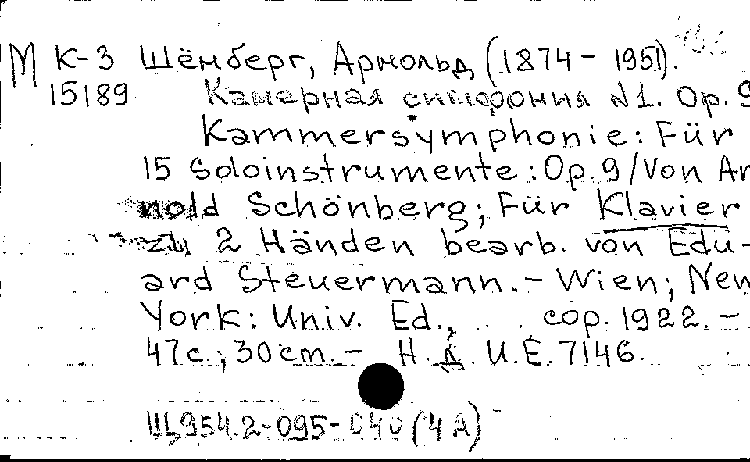 М К-3 Шёнберг, Арнольд (1874 - 1951).
15189 Камерная симфония №1. Op. 9
Kammersymphonie: Für
15 Soloinstrumente: Op. 9 / Von Ar
nold Schönberg; Für Klavier
zu 2 Händen bearb. von Edu-
ard Steuermann. - Wien; New
York: Univ. Ed., cop. 1922. -
47 с.; 30 cm. - Н. Д. U. E. 7146.
Щ954.2-095-040 (4А)